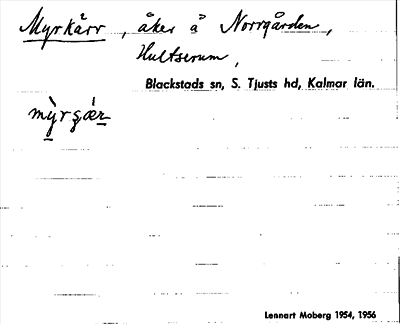 Myrkärr, åker å Norrgården,
Hultserum,
Blackstads sn, S. Tjusts hd, Kalmar län.
Lennart Moberg 1954, 1956